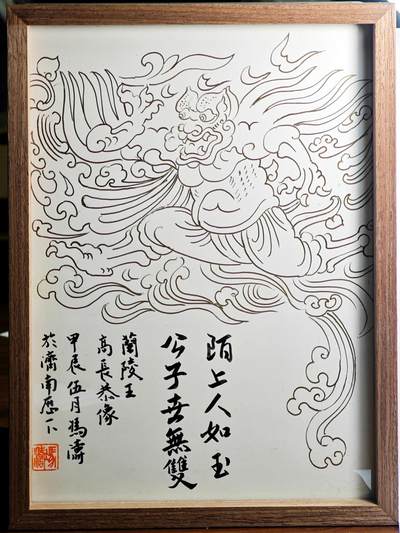 陌上人如玉
公子世無雙
蘭陵王
高長恭像
甲辰伍月馮濤
於濟南歷下